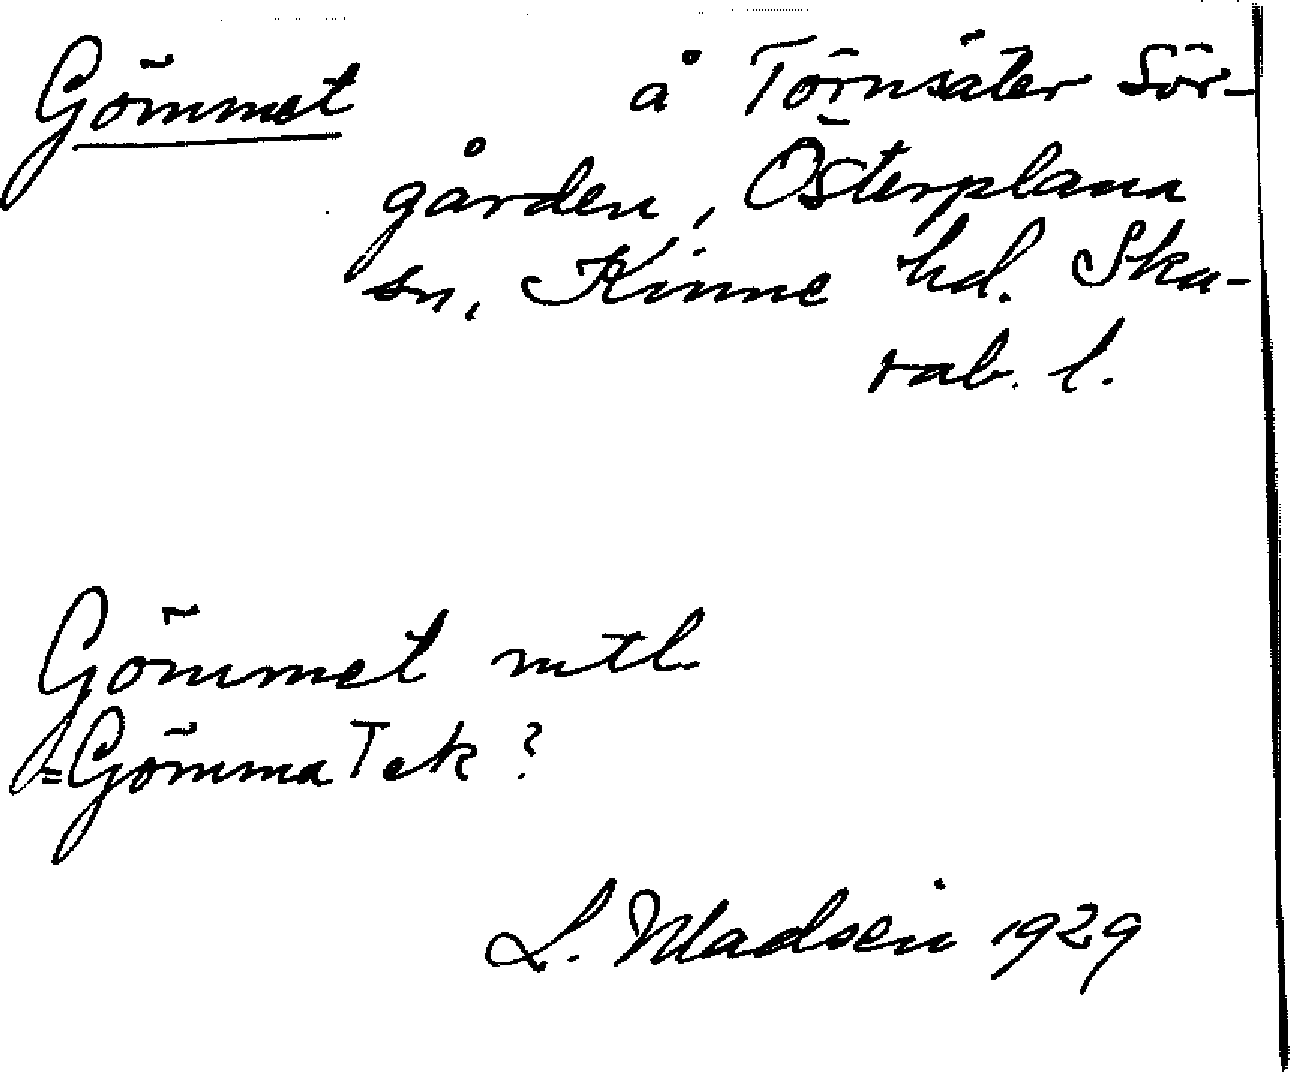 Gömmet å Törnsäter Sör-
gården, Österplana
sn, Kinne hd. Ska-
rab. l.
Gömmet mtl.
=Gömma Tek ?
L. Madsen 1929